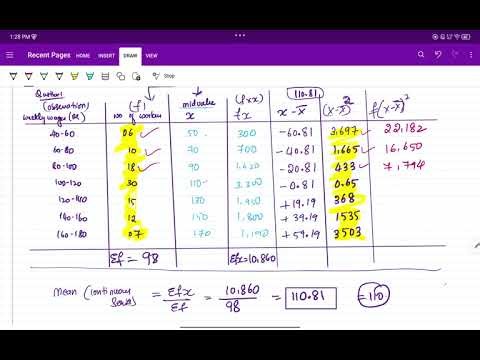 1:28 PM
Recent Pages HOME INSERT DRAW VIEW
Stop Drawing
110.81
(observation) (f) midvalue (fxx) x - x̄ (x-x̄)² f(x-x̄)²
weekly wages no of workers x fx
40-60 06 50 300 -60.81 3,697 22,182
60-80 10 70 700 -40.81 1,665 16,650
80-100 18 90 1,620 -20.81 433 7,794
100-120 30 110 3,300 -0.81 0.65
120-140 15 130 1,950 +19.19 368
140-160 12 150 1,800 +39.19 1535
160-180 07 170 1,190 +59.19 3503
Σf = 98 Σfx=10,860
Mean (continuous series) = Σfx/Σf = 10,860/98 = 110.81 = 110